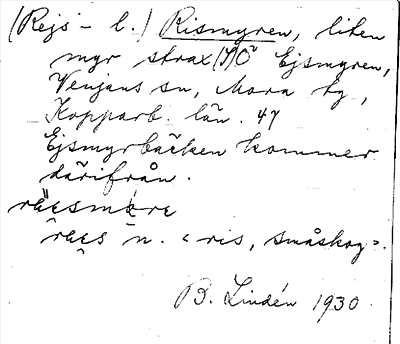 (Rejs- l.) Rismyren, liten
myr strax (S)O Ejsmyren,
Venjans sn, Mora tg,
Kopparb. län. 47
Ejsmyrbäcken kommer
därifrån.
n. "ris, småskog".
B. Lindén 1930.